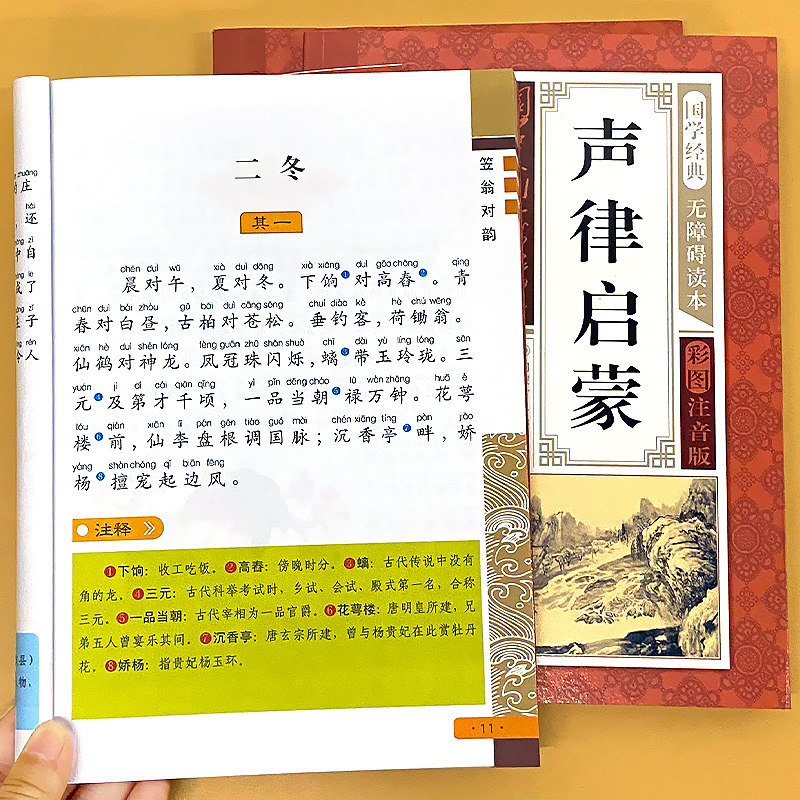 二 冬
其一
chén duì wǔ xià duì dōng xià xiǎng duì gāo chōng qīng
晨对午，夏对冬。下饷①对高舂②。青
chūn duì bái zhòu gǔ bǎi duì cāng sōng chuí diào kè hè chú wēng
春对白昼，古柏对苍松。垂钓客，荷锄翁。
xiān hè duì shén lóng fèng guān zhū shǎn shuò chī dài yù líng lóng sān
仙鹤对神龙。凤冠珠闪烁，螭③带玉玲珑。三
yuán jí dì cái qiān qǐng yī pǐn dāng cháo lù wàn zhōng huā è
元④及第才千顷，一品当朝⑤禄万钟。花萼
lóu qián xiān lǐ pán gēn tiáo guó mài chén xiāng tíng pàn jiāo
楼⑥前，仙李盘根调国脉；沉香亭⑦畔，娇
yáng shàn chǒng qǐ biān fēng
杨⑧擅宠起边风。
注释
①下饷：收工吃饭。②高舂：傍晚时分。③螭：古代传说中没有
角的龙。④三元：古代科举考试时，乡试、会试、殿试第一名，合称
三元。⑤一品当朝：古代宰相为一品官爵。⑥花萼楼：唐明皇所建，兄
弟五人曾宴乐其间。⑦沉香亭：唐玄宗所建，曾与杨贵妃在此赏牡丹
花。⑧娇杨：指贵妃杨玉环。
笠翁对韵
· 11 ·
zhuāng
庄
hái
还
zì
自
le
了
zǐ
子
rén
人
县）
物，
声律启蒙
国学经典
无障碍读本
彩图注音版